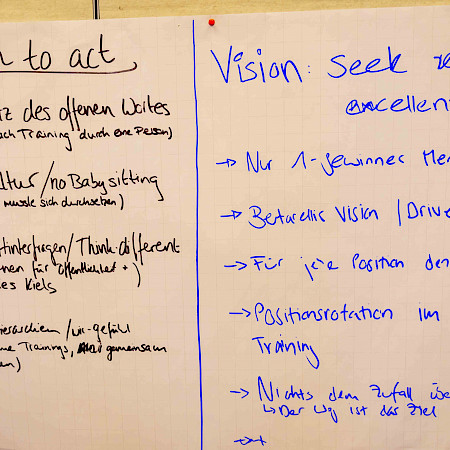 to act
des offenen Wortes
Training durch eine Person)
/no Babysitting
musste sich durchsetzen)
/Think different
für Öffentlichkeit +)
Kiels
/wir-gefühl
Trainings, gemeinsam
Vision: Seek
excellen
→ Nur 1-gewinner Men
→ Bertarellis Vision / Drive
→ Für jede Position den
→ Positionsrotation im
Training
→ Nichts dem Zufall übe
↳ Der Weg ist das Ziel